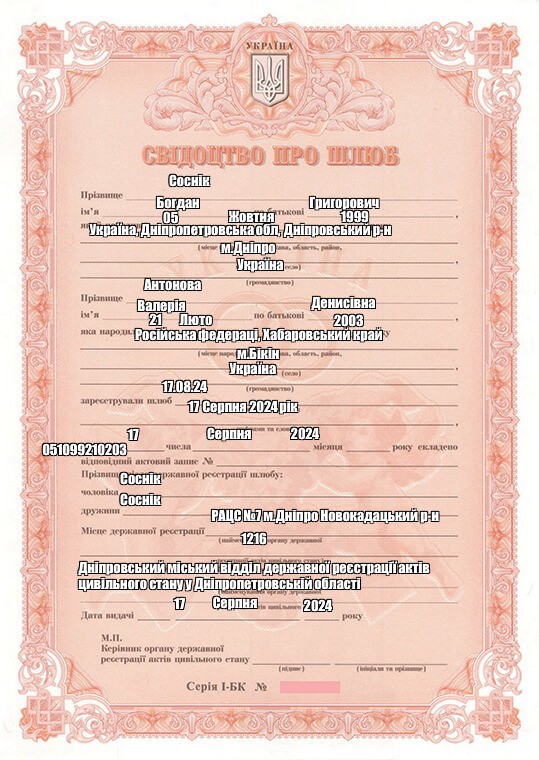 УКРАЇНА
СВІДОЦТВО ПРО ШЛЮБ
Соснік
Прізвище
Богдан Григорович
ім'я по батькові
05 Жовтня 1999
Україна, Дніпропетровська обл, Дніпровський р-н
(місце на, область, район,
м.Дніпро
Україна
село)
(громадянство)
Антонова
Прізвище
Валерія Денисівна
ім'я по батькові
21 Люто 2003
яка народил ку
Російська федераці, Хабаровський край
(місце народ а, область, район,
м.Бікін
Україна
(село)
17.08.24
(громадянство)
зареєстрували шлюб
17 Серпня 2024 рік
ами та слов
17 Серпня 2024
051099210203 числа місяця року складено
відповідний актовий запис №
Прізвищ державної реєстрації шлюбу:
Соснік
чоловіка
Соснік
дружини
РАЦС №7 м.Дніпро Новокадацький р-н
Місце державної реєстрації
(найме органу державної
1216
реєстрації актів цивільного стану)
Дніпровський міський Відділ державної реєстрації актів
цивільного стану у Дніпропетровській області
(найменування органу державної
17 Серпня 2024
цивільного
Дата видачі року
М.П.
Керівник органу державної
реєстрації актів цивільного стану
(підпис) (ініціали та прізвище)
Серія І-БК №